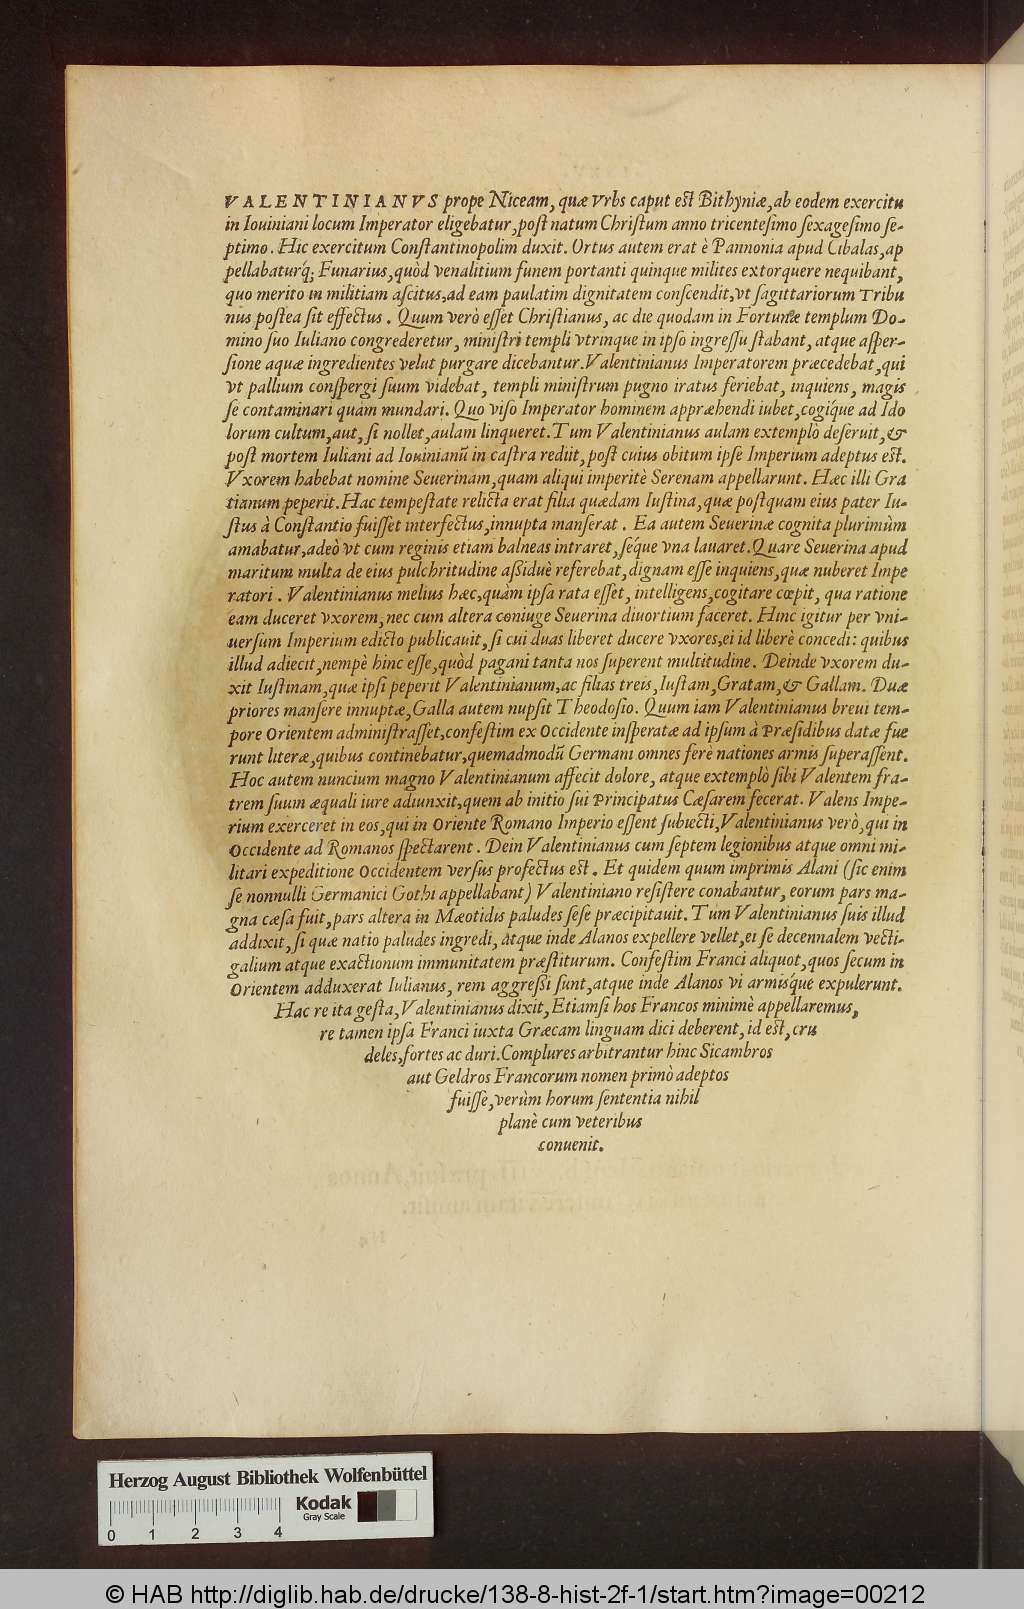 VALENTINIANVS prope Niceam, quæ Vrbs caput eſt Bithyniæ, ab eodem exercitu
in Iouiniani locum Imperator eligebatur, poſt natum Chriſtum anno tricenteſimo ſexageſimo ſe-
ptimo. Hic exercitum Conſtantinopolim duxit. Ortus autem erat è Pannonia apud Cibalas, ap
pellabaturq́; Funarius, quòd venalitium funem portanti quinque milites extorquere nequibant,
quo merito in militiam aſcitus, ad eam paulatim dignitatem conſcendit, vt ſagittariorum Tribu
nus poſtea ſit effectus. Quum verò eſſet Chriſtianus, ac die quodam in Fortunæ templum Do-
mino ſuo Iuliano congrederetur, miniſtri templi vtrinque in ipſo ingreſſu ſtabant, atque aſper-
ſione aquæ ingredientes velut purgare dicebantur. Valentinianus Imperatorem præcedebat, qui
vt pallium conſpergi ſuum videbat, templi miniſtrum pugno iratus feriebat, inquiens, magis
ſe contaminari quàm mundari. Quo viſo Imperator hominem appræhendi iubet, cogíque ad Ido
lorum cultum, aut, ſi nollet, aulam linqueret. Tum Valentinianus aulam extemplò deſeruit, &
poſt mortem Iuliani ad Iouinianū in caſtra rediit, poſt cuius obitum ipſe Imperium adeptus eſt.
Vxorem habebat nomine Seuerinam, quam aliqui imperitè Serenam appellarunt. Hæc illi Gra
tianum peperit. Hac tempeſtate relicta erat filia quædam Iuſtina, quæ poſtquam eius pater Iu-
ſtus à Conſtantio fuiſſet interfectus, innupta manſerat. Ea autem Seuerinæ cognita plurimùm
amabatur, adeò vt cum reginis etiam balneas intraret, ſéque vna lauaret. Quare Seuerina apud
maritum multa de eius pulchritudine aßiduè referebat, dignam eſſe inquiens, quæ nuberet Impe
ratori. Valentinianus melius hæc, quàm ipſa rata eſſet, intelligens, cogitare cœpit, qua ratione
eam duceret vxorem, nec cum altera coniuge Seuerina diuortium faceret. Hinc igitur per vni-
uerſum Imperium edicto publicauit, ſi cui duas liberet ducere vxores, ei id liberè concedi: quibus
illud adiecit, nempè hinc eſſe, quòd pagani tanta nos ſuperent multitudine. Deinde vxorem du-
xit Iuſtinam, quæ ipſi peperit Valentinianum, ac filias treis, Iuſtam, Gratam, & Gallam. Duæ
priores manſere innuptæ, Galla autem nupſit Theodoſio. Quum iam Valentinianus breui tem-
pore Orientem adminiſtraſſet, confeſtim ex Occidente inſperatæ ad ipſum à Præſidibus datæ fue
runt literæ, quibus continebatur, quemadmodū Germani omnes ferè nationes armis ſuperaſſent.
Hoc autem nuncium magno Valentinianum affecit dolore, atque extemplò ſibi Valentem fra-
trem ſuum æquali iure adiunxit, quem ab initio ſui Principatus Cæſarem fecerat. Valens Impe-
rium exerceret in eos, qui in Oriente Romano Imperio eſſent ſubiecti, Valentinianus verò, qui in
Occidente ad Romanos ſpectarent. Dein Valentinianus cum ſeptem legionibus atque omni mi-
litari expeditione Occidentem verſus profectus eſt. Et quidem quum imprimis Alani (ſic enim
ſe nonnulli Germanici Gothi appellabant) Valentiniano reſiſtere conabantur, eorum pars ma-
gna cæſa fuit, pars altera in Mæotidis paludes ſeſe præcipitauit. Tum Valentinianus ſuis illud
addixit, ſi quæ natio paludes ingredi, atque inde Alanos expellere vellet, ei ſe decennalem vecti-
galium atque exactionum immunitatem præſtiturum. Confeſtim Franci aliquot, quos ſecum in
Orientem adduxerat Iulianus, rem aggreßi ſunt, atque inde Alanos vi armisq́ue expulerunt.
Hac re ita geſta, Valentinianus dixit, Etiamſi hos Francos minimè appellaremus,
re tamen ipſa Franci iuxta Græcam linguam dici deberent, id eſt, cru
deles, fortes ac duri. Complures arbitrantur hinc Sicambros
aut Geldros Francorum nomen primò adeptos
fuiſſe, verùm horum ſententia nihil
planè cum veteribus
conuenit.
Herzog August Bibliothek Wolfenbüttel
Kodak
Gray Scale
0 1 2 3 4
© HAB http://diglib.hab.de/drucke/138-8-hist-2f-1/start.htm?image=00212